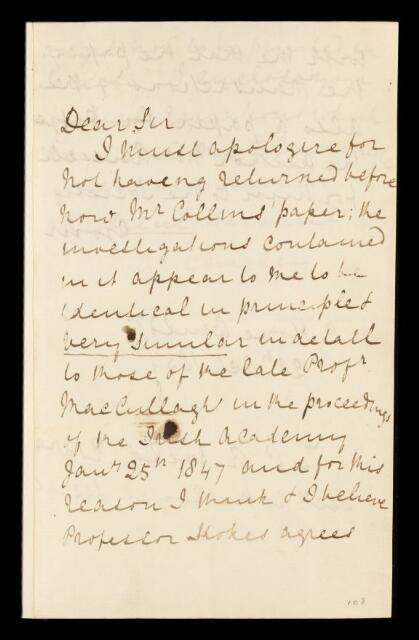 Dear Sir
I must apologize for
not having returned before
now, Mr Collins' paper; the
investigations contained
in it appear to me to be
identical in principle &
very similar in detail
to those of the late Profr
MacCullagh in the proceedings
of the Irish Academy
Jany 25th 1847 and for this
reason I think & I believe
Professor Stokes agrees
108